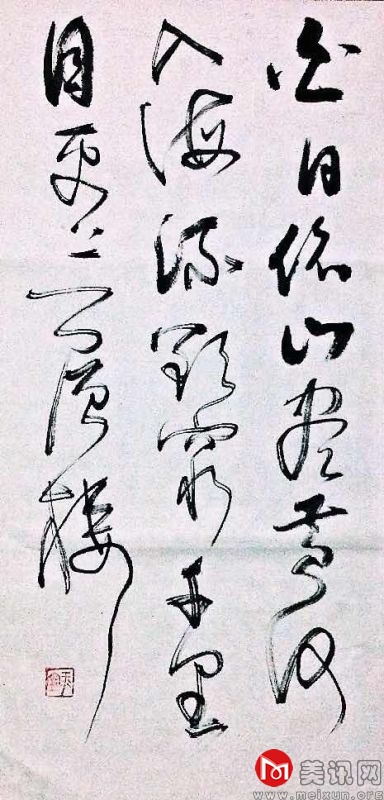 白日依山尽黄河
入海流欲窮千里
目更上一層楼
美讯网
www.meixun.org